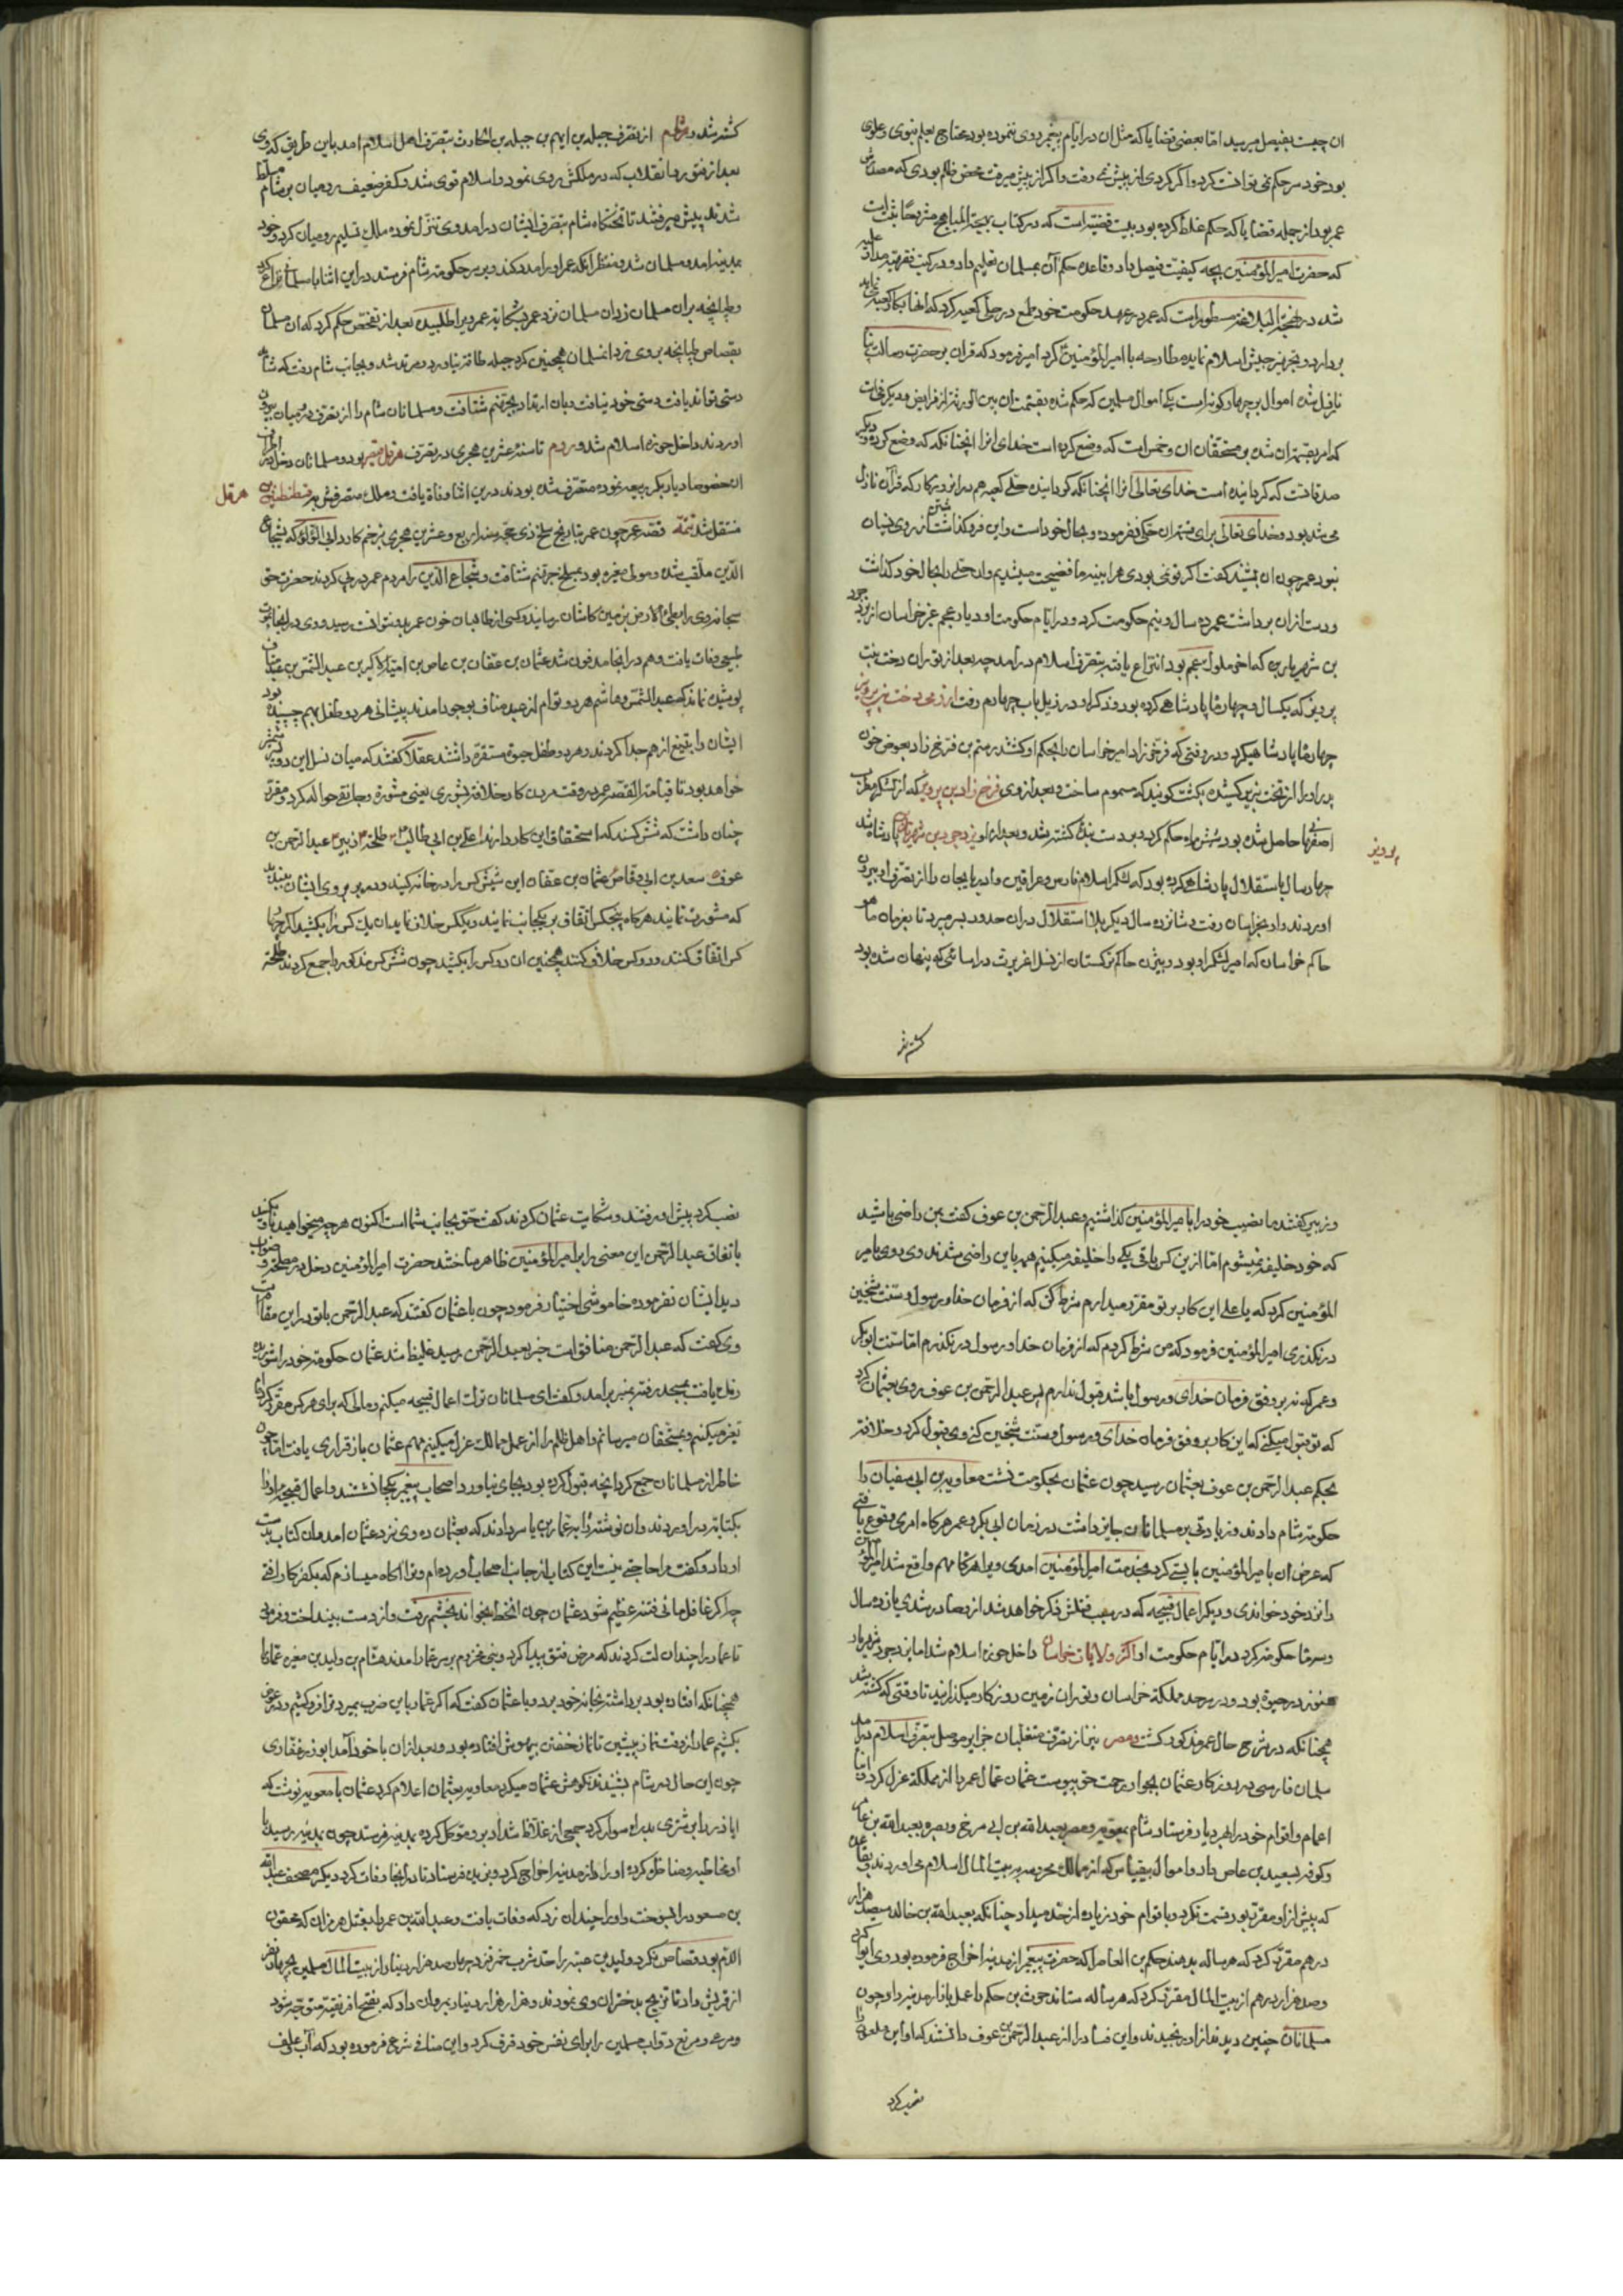 ان چیست بفیصل میرسید اما بعضی قضایا که مثل ان در ایام پیغمبر روی ننموده بود محتاج بعلم نبوی و علوی
بود خود سر حکم نمی توانست کرد و اگر کردی از پیش نمی رفت و اگر از پیش میرفت محض ظلم بودی که مصدرش
عمر بود از جمله قضایا که حکم غلط کرده بود بیست قضیه است که در کتاب بهجة المباهج مشروحا ثبت است
که حضرت امیر المؤمنین بچه کیفیت فیصل داد و قاعده حکم آن بمسلمان تعلیم داد و در کتب فقهیه مدار علیه
شد در نهج البلاغه مسطور است که عمر در عهد حکومت خود طمع در حلی کعبه کرد که انها بکار کعبه نمی آید
بردارد و تجهیز جیش اسلام نماید مطارحه با امیر المؤمنین کرد امیر فرمود که قران بر حضرت رسالت پناه
نازل شد اموال بر چهار گونه است یکی اموال مسلمین که حکم شده بقسمت ان بین الورثة از فرایض و دیگر فیئست
که امر بقسمت ان شده بر مستحقان ان و خمس است که وضع کرده است خدای انرا انچنانکه که وضع کرده و دیگر
صدقاتست که گردانیده است خدای تعالی انرا انچنانکه گردانیده حلی کعبه هم در ان روزگار که قرآن نازل
می شد بود و خدای تعالی برای قسمت ان حکمی نفرموده و بحال خود است و این فروگذاشتن از روی نسیان
نبود عمر چون ان بشنید گفت اگر تو نمی بودی هراینه ما فضیحت میشدیم و ان حلی را بحال خود گذاشت
و دست از ان برداشت عمر ده سال و نیم حکومت کرد و در ایام حکومت او دیار عجم غیر خراسان از یزدجرد
بن شهریار بن که اخر ملوک عجم بود انتزاع یافته بتصرف اسلام درامد چه بعد از توران دخت بنت
پرویز که یکسال و چهار ماه پادشاهی کرده بود و ذکر او در ذیل باب چهارم رفت ازرمی دخت بنت پرویز
چهار ماه پادشاهی کرد و در وقتی که فرخ زاد امیر خراسان را بحکم او کشتند رستم بن فرخ زاد بعوض خون
پدر او را از تخت بزیر کشیده بکشت گویند که مسموم ساخت و بعد از وی فرخ زاد بن پرویز که از شکر مطرب
اصفهانی حاصل شده بود شش ماه حکم کرد و بر دست بنده کشته شد و بعد از او یزدجرد بن شهریار پادشاه شد
پرویز
چهار سال باستقلال پادشاهی کرده بود که لشکر اسلام فارس و عراقین و اذربایجان را از تصرف او بیرون
اوردند و او بخراسان رفت و شانزده سال دیگر بلا استقلال در ان حدود بسر میبرد تا بفرمان ماهو
حاکم خراسان که امیر لشکر او بود و بیژن حاکم ترکستان از نسل افریدون در اسیائی که پنهان شده بود
کشته شد
کشته شد و شام از تصرف جبله بن ایهم بن جبله بن الحارث بتصرف اهل اسلام امد باین طریق که وی
بعد از فتق رها انقلاب که در ملکش روی نمود و اسلام قوی شد و کفر ضعیف رومیان بر شام مسلط
شدند پیش میرفتند تا تختگاه شام بتصرف ایشان درامد وی تنزل نموده ملک تسلیم رومیان کرد و خود
بمدینه امد و مسلمان شد و منتظر انکه عمر او را مدد کند و بر سر حکومت شام فرستد در این اثنا با مسلمانی نزاع کرد
و طپانچه بر ان مسلمان زد ان مسلمان نزد عمر بشکایت عمر ویرا طلبیده بعد از تفحص حکم کرد که ان مسلمان
بقصاص طپانچه بر وی زند انمسلمان همچنین کرد جبله طاقت نیاورد و مرتد شد و بجانب شام رفت که شاید
دستی تواند یافت دستی خود نیافت و بان ارتداد بجهنم شتافت و مسلمانان شام را از تصرف رومیان بیرون
اوردند داخل حوزه اسلام شد و روم تا سنه عشرین هجری در تصرف هرقل قیصر بود و مسلمانان دخل در اطراف
ان خصوصا دیاربکر و ربیعه نموده متصرف شده بودند در این اثنا وفات یافت و ملک متصرفش بر قسطنطین
هرقل
منتقل شد تتمه قصه عمر چون عمر بتاریخ سلخ ذی حجه سنه اربع و عشرین هجری بزخم کارد ابی لؤلؤ که بشجاع
الدین ملقب شد و مولی مغیره بود بمطرح جهنم شتافت و شجاع الدین را مردم عمر در پی کردند حضرت حق
سبحانه وی را بطی الارض بزمین کاشان رسانید و کسی از طالبان خون عمر بدو نتوانست رسید و وی در انجا بموت
طبیعی وفات یافت و هم در انجا مدفون شد عثمان بن عفان بن عاص بن امیة الاکبر بن عبد الشمس بن عبد مناف
پوشیده نماند که عبد الشمس و هاشم هر دو توام از عبد مناف بوجود امدند پیشانی هر دو طفل بهم چسبیده بود
ایشان را بتیغ از هم جدا کردند و هر دو طفل حیوة مستقره داشتند عقلا گفتند که میان نسل این دو پسر شمشیر
خواهد بود تا قیامت القصه عمر در وقت مردن کار خلافت بشوری یعنی مشورة و جانقی حواله کرد و مقرر
چنان داشت که شش کسند که استحقاق این کار دارند علی بن ابی طالب طلحه زبیر عبد الرحمن بن
عوف سعد بن ابی وقاص عثمان بن عفان این شش کس را در خانه کنید و در بر روی ایشان ببندید
که مشورت نمایند هرگاه پنجکس اتفاق بر یکجانب نمایند و یککس خلاف نماید ان یک کس را بکشید اگر چهار
کس اتفاق کنند و دو کس خلاف کنند همچنین ان دو کس را بکشید چون شش کس مذکور را جمع کردند طلحه
و زبیر گفتند ما نصیب خود را بامیر المؤمنین گذاشتیم و عبد الرحمن بن عوف گفت بمن راضی باشید
که خود خلیفه نمیشوم اما ازین کس باقی یکی را خلیفه میکنیم همه باین راضی شدند وی روی بامیر
المؤمنین کرد که یا علی این کار بر تو مقرر میدارم شرط کن که از فرمان خدا و رسول و سنت شیخین
در نگذری امیر المؤمنین فرمود که من شرط کردم که از فرمان خدا و رسول در نگذرم اما سنت ابوبکر
و عمر که نه بر وفق فرمان خدای و رسول باشد قبول ندارم پس عبد الرحمن بن عوف روی بعثمان کرد
که تو قبول میکنی که این کار بر وفق فرمان خدای و رسول و سنت شیخین کنی وی قبول کرد و خلافت
بحکم عبد الرحمن بن عوف بعثمان رسید چون عثمان بحکومت نشست معاویة بن ابی سفیان را
حکومت شام دادند و زیادتی بر مسلمانان جایز داشت در زمان ابی بکر و عمر هرگاه امری وقوع یافتی
که عرض ان بامیر المؤمنین بایستی کرد بخدمت امیر المؤمنین امدی و یرا هرگاه مهم واقع شد امیر المؤمنین
را نزد خود خواندی و دیگر اعمال قبیحه که در سبب قتلش ذکر خواهد شد از و صادر شدی یازده سال
و سه ماه حکومت کرد در ایام حکومت او اکثر ولایات خراسان داخل حوزه اسلام شد اما یزدجرد شهریار
هنوز در حیوة بود و در سرحد مملکة خراسان و توران زمین روزگار میگذرانید تا وقتی که کشته شد
همچنانکه در شرح حال عمر مذکور گشت و مصر نیز از تصرف متغلبان جزایر موصل بتصرف اسلام درامد
سلمان فارسی در روزگار عثمان بجوار رحمت حق پیوست عثمان عمال عمر را از مملکة عزل کرد و ابنا
اعمام و اقوام خود را بهر دیار فرستاد شام بمعویه و مصر بعبد الله بن ابی سرح و بصره بعبد الله بن عامر
و کوفه بسعید بن عاص داد و اموال بیقیاس که از ممالک محروسه به بیت المال اسلام می اوردند بقاعده
که پیش از او مقرر بود قسمت نکرد و باقوام خود زیاده از حد میداد چنانکه بعبد الله بن خالد سیصد هزار
درهم مقرر کرد که هر ساله بدهند حکم بن العاص را که حضرت پیغمبر از مدینه اخراج فرموده بود وی ایواء کرد
و صد هزار درهم از بیت المال مقرر کرد که هر ساله ستاند حرث بن حکم را عمل بازار مدینه داد و چون
مسلمانان چنین دیدند از او رنجیدند و این فساد را از عبد الرحمن بن عوف دانستند که او این ملعون را
نصب کرد
نصب کرد پیش او رفتند و شکایت عثمان کردند گفت حق بجانب شما است اکنون هر چه میخواهید بکنید
باتفاق عبد الرحمن این معنی را بر امیر المؤمنین ظاهر ساختند حضرت امیر المؤمنین دخل در مصلحت و صواب
دید ایشان نفرموده خاموشی اختیار فرمود چون با عثمان گفتند که عبد الرحمن با تو در این مقام است
وی گفت که عبد الرحمن منافق است خبر بعبد الرحمن رسید غلیظ شد عثمان حکومت خود را شوریده
یافت بمسجد رفته بمنبر برامد و گفت ای مسلمانان ترک اعمال قبیحه میکنم و مالی که برای هر کس مقرر کرده ام
تغیر میکنم و بمستحقان میرسانم و اهل ظلم را از عمل ممالک عزل میکنم مهم عثمان باز قراری یافت اما چون
خاطر از مسلمانان جمع کرد انچه قبول کرده بود بجای نیاورد اصحاب پیغمبر یکجا نشستند و اعمال قبیحه او را
بکتابت دراوردند و ان نوشته را بعمار بن یاسر دادند که بعثمان ده وی نزد عثمان امد و ان کتاب بدست
او داد و گفت مرا حاجتی نیست این کتاب از جانب اصحاب اورده ام و ترا اگاه میسازم که بفکر کار افتی
چرا که غافل مانی فتنه عظیم شود عثمان چون انخط بخواند بخشم رفت و از دست بینداخت و فرمود
تا عمار را چندان لت کردند که مرض فتق پیدا کرد و بنی مخزوم بر سر عمار امدند هشام بن ولید بن مغیره عمار را
همچنانکه افتاده بود برداشته بخانه خود برد و با عثمان گفت که اگر عمار باین ضرب بمیرد ترا فرو کشیم و در عوض
بکشیم عمار از وقت نماز پیشین تا نماز خفتن بیهوش افتاده بود و بعد از ان با خود آمد ابوذر غفاری
چون این حال در شام بشنید نکوهش عثمان میکرد معاویه بعثمان اعلام کرد عثمان بامعویه نوشت که
اباذر را بر شتری بد راه سوار کرد جمعی از غلاظ شداد برو موکل کرده بمدینه فرستد چون بمدینه رسید با
او مخاطبه رضا ظلم کرده او را از مدینه اخراج کرد و بربذه فرستاد تا در انجا وفات کرد دیگر مصحف عبد الله
بن مسعود را بسوخت و او را چندان زد که وفات یافت و عبد الله بن عمر را بقتل هرمزان که محقون
الدم بود قصاص نکرد و ولید بن عتبه را حد شرب خمر نزد و چهار صد هزار دینار از بیت المال مسلمین بچهار نفر
از قریش داد تا تزویج بدختران وی نمودند و هزار هزار دینار بمروان داد که بفتح افریقیه متوجه شود
و مرعی و مرتع دواب مسلمین را برای نفس خود قرق کرد و این منافی شرع فرموده بود که آب علف